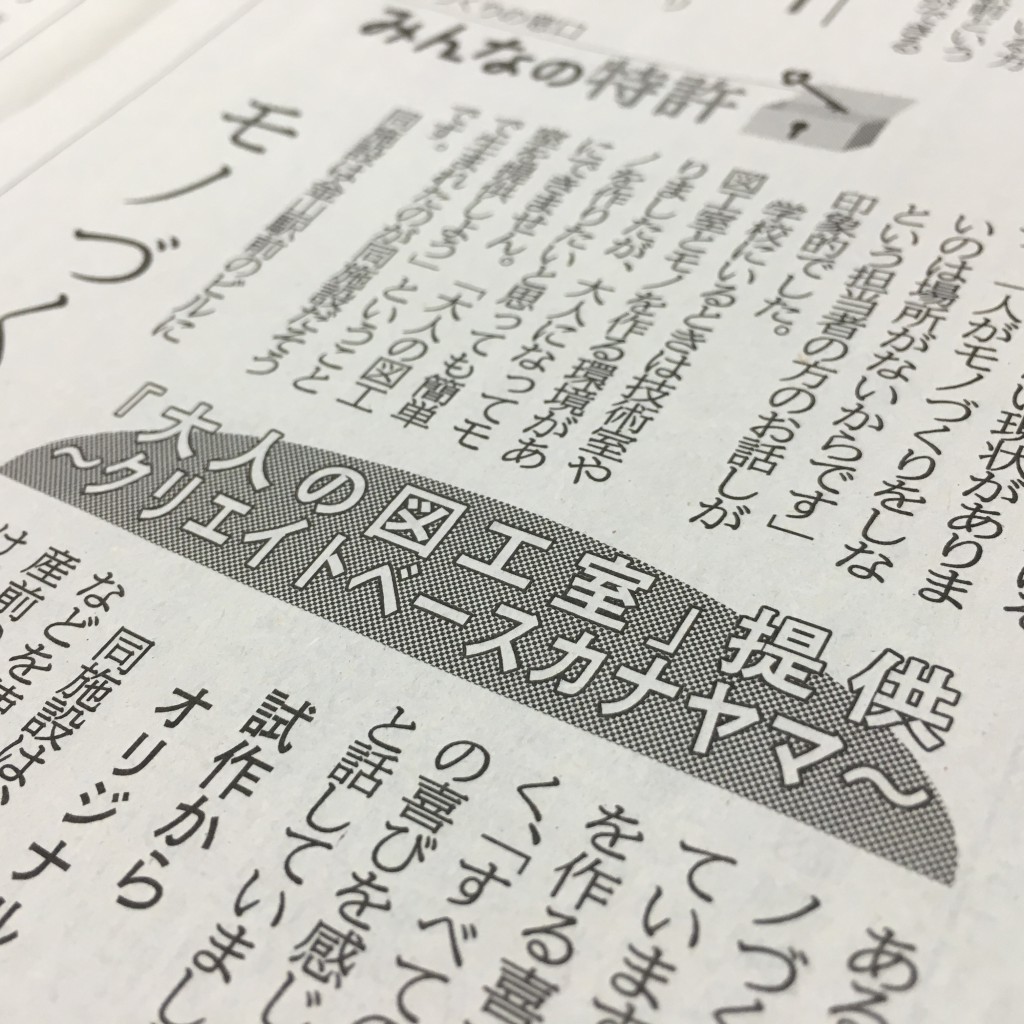 みんなの特許
い現状がありま
「人がモノづくりをしな
いのは場所がないからです」
という担当者の方のお話しが
印象的でした。
学校にいるときは技術室や
図工室とモノを作る環境があ
りましたが、大人になってモ
ノを作りたいと思っても簡単
にできません。「大人の図工
室を提供しよう」ということ
で生まれたのが同施設だそう
です。
同施設は金山駅前のビルに
モノづく
『大人の図工室」提供
〜クリエイトベースカナヤマ〜
ある
ノづく
ています
を作る喜
く、「すべて
の喜びを感じ
と話していまし
試作から
オリジナル
同施設は、
など
産前